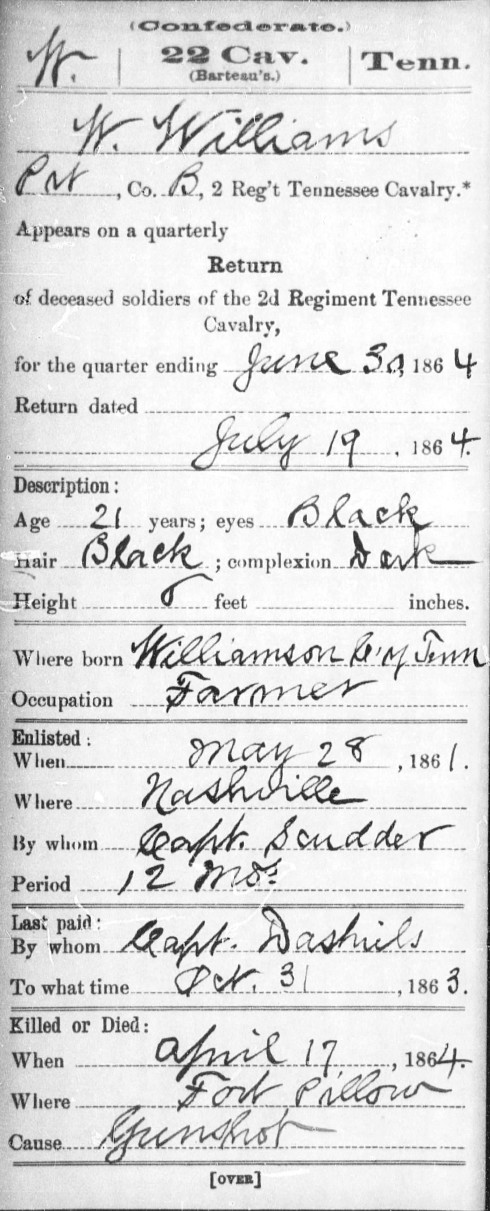 (Confederate.)
W. | 22 Cav. | Tenn.
(Barteau's.)
W. Williams
Pvt, Co. B, 2 Reg't Tennessee Cavalry.*
Appears on a quarterly
Return
of deceased soldiers of the 2d Regiment Tennessee
Cavalry,
for the quarter ending June 30, 1864
Return dated
July 19, 1864.
Description:
Age 21 years; eyes Black
Hair Black; complexion Dark
Height feet inches.
Where born Williamson C'y Tenn
Occupation Farmer
Enlisted:
When May 28, 1861.
Where Nashville
By whom Capt. Scudder
Period 12 Mos.
Last paid:
By whom Capt. Dashiels
To what time Oct. 31, 1863.
Killed or Died:
When April 17, 1864.
Where Fort Pillow
Cause Gunshot
[OVER]